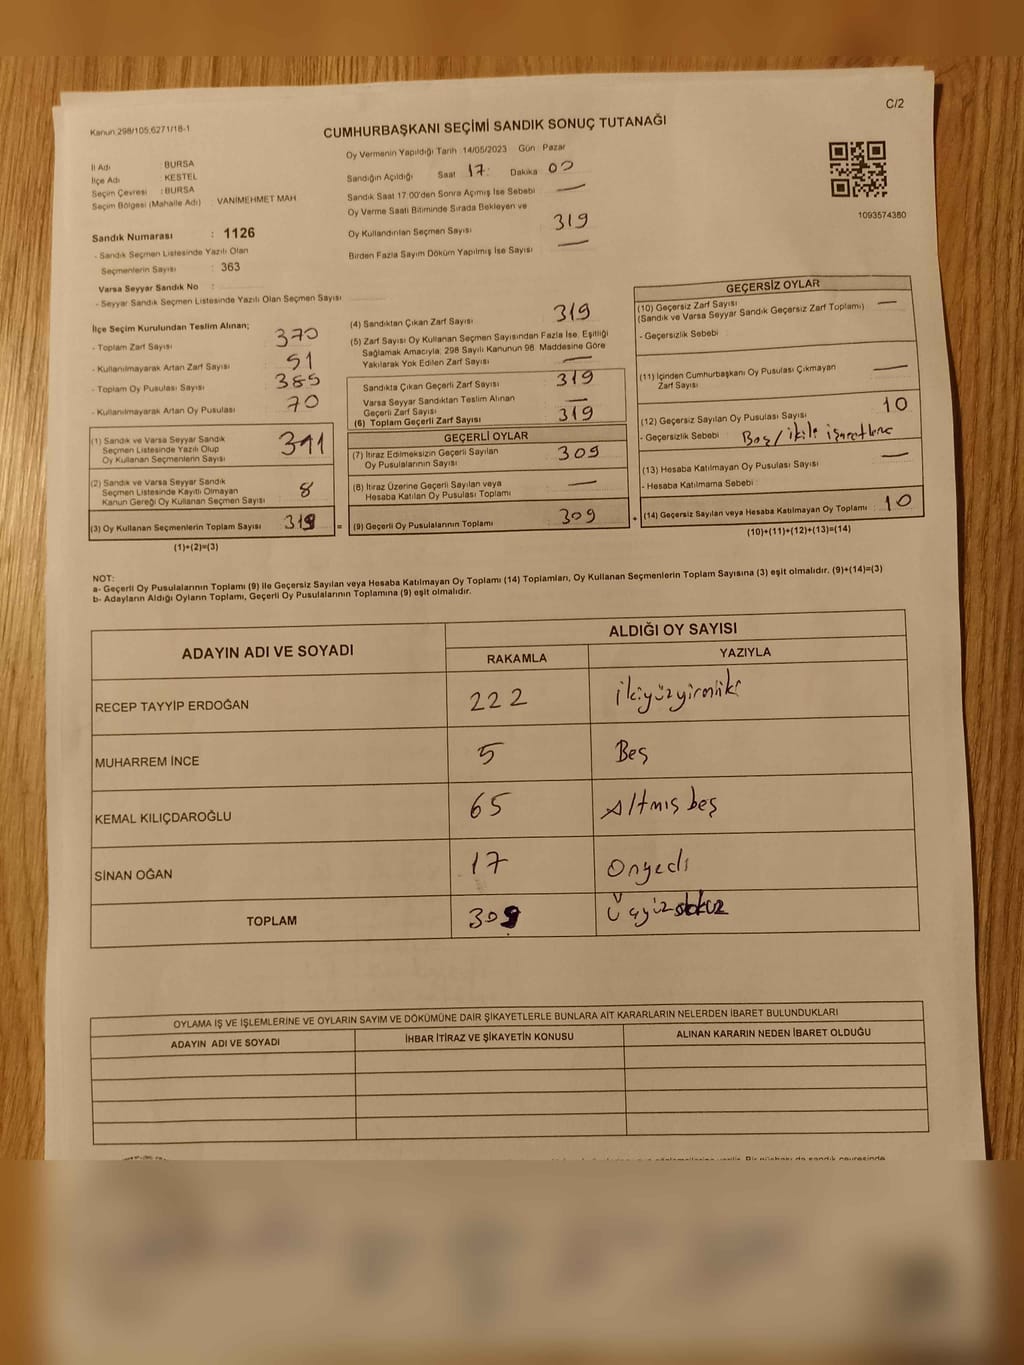 C/2
Kanun 298/105;6271/18-1
CUMHURBAŞKANI SEÇİMİ SANDIK SONUÇ TUTANAĞI
İl Adı : BURSA
İlçe Adı : KESTEL
Seçim Çevresi : BURSA
Seçim Bölgesi (Mahalle Adı) : VANİMEHMET MAH
Sandık Numarası : 1126
- Sandık Seçmen Listesinde Yazılı Olan
Seçmenlerin Sayısı : 363
Varsa Seyyar Sandık No :
- Seyyar Sandık Seçmen Listesinde Yazılı Olan Seçmen Sayısı
Oy Vermenin Yapıldığı Tarih 14/05/2023 Gün Pazar
Sandığın Açıldığı Saat 17: Dakika 00
Sandık Saat 17.00'den Sonra Açımış İse Sebebi —
Oy Verme Saati Bitiminde Sırada Bekleyen ve
Oy Kullandırılan Seçmen Sayısı 319
Birden Fazla Sayım Döküm Yapılmış İse Sayısı —
1093574380
İlçe Seçim Kurulundan Teslim Alınan;
- Toplam Zarf Sayısı 370
- Kullanılmayarak Artan Zarf Sayısı 51
- Toplam Oy Pusulası Sayısı 385
- Kullanılmayarak Artan Oy Pusulası 70
(1) Sandık ve Varsa Seyyar Sandık
Seçmen Listesinde Yazılı Olup
Oy Kullanan Seçmenlerin Sayısı
(2) Sandık ve Varsa Seyyar Sandık
Seçmen Listesinde Kayıtlı Olmayan
Kanun Gereği Oy Kullanan Seçmen Sayısı 8
(3) Oy Kullanan Seçmenlerin Toplam Sayısı 319 =
(1)+(2)=(3)
(4) Sandıktan Çıkan Zarf Sayısı 319
(5) Zarf Sayısı Oy Kullanan Seçmen Sayısından Fazla İse, Eşitliği
Sağlamak Amacıyla, 298 Sayılı Kanunun 98. Maddesine Göre
Yakılarak Yok Edilen Zarf Sayısı —
Sandıkta Çıkan Geçerli Zarf Sayısı 319
Varsa Seyyar Sandıktan Teslim Alınan
Geçerli Zarf Sayısı —
(6) Toplam Geçerli Zarf Sayısı 319
GEÇERLİ OYLAR
(7) İtiraz Edilmeksizin Geçerli Sayılan
Oy Pusulalarının Sayısı 309
(8) İtiraz Üzerine Geçerli Sayılan veya
Hesaba Katılan Oy Pusulası Toplamı —
(9) Geçerli Oy Pusulalarının Toplamı 309 +
GEÇERSİZ OYLAR
(10) Geçersiz Zarf Sayısı
(Sandık ve Varsa Seyyar Sandık Geçersiz Zarf Toplamı) —
- Geçersizlik Sebebi
(11) İçinden Cumhurbaşkanı Oy Pusulası Çıkmayan
Zarf Sayısı —
(12) Geçersiz Sayılan Oy Pusulası Sayısı 10
- Geçersizlik Sebebi Boş/ikili işaretleme
(13) Hesaba Katılmayan Oy Pusulası Sayısı —
- Hesaba Katılmama Sebebi
(14) Geçersiz Sayılan veya Hesaba Katılmayan Oy Toplamı 10
(10)+(11)+(12)+(13)=(14)
NOT:
a- Geçerli Oy Pusulalarının Toplamı (9) ile Geçersiz Sayılan veya Hesaba Katılmayan Oy Toplamı (14) Toplamları, Oy Kullanan Seçmenlerin Toplam Sayısına (3) eşit olmalıdır. (9)+(14)=(3)
b- Adayların Aldığı Oyların Toplamı, Geçerli Oy Pusulalarının Toplamına (9) eşit olmalıdır.
ADAYIN ADI VE SOYADI ALDIĞI OY SAYISI
RAKAMLA YAZIYLA
RECEP TAYYİP ERDOĞAN 222 ikiyüzyirmiiki
MUHARREM İNCE 5 Beş
KEMAL KILIÇDAROĞLU 65 Altmış beş
SİNAN OĞAN 17 Onyedi
TOPLAM 309 Üçyüzdokuz
OYLAMA İŞ VE İŞLEMLERİNE VE OYLARIN SAYIM VE DÖKÜMÜNE DAİR ŞİKAYETLERLE BUNLARA AİT KARARLARIN NELERDEN İBARET BULUNDUKLARI
ADAYIN ADI VE SOYADI İHBAR İTİRAZ VE ŞİKAYETİN KONUSU ALINAN KARARIN NEDEN İBARET OLDUĞU